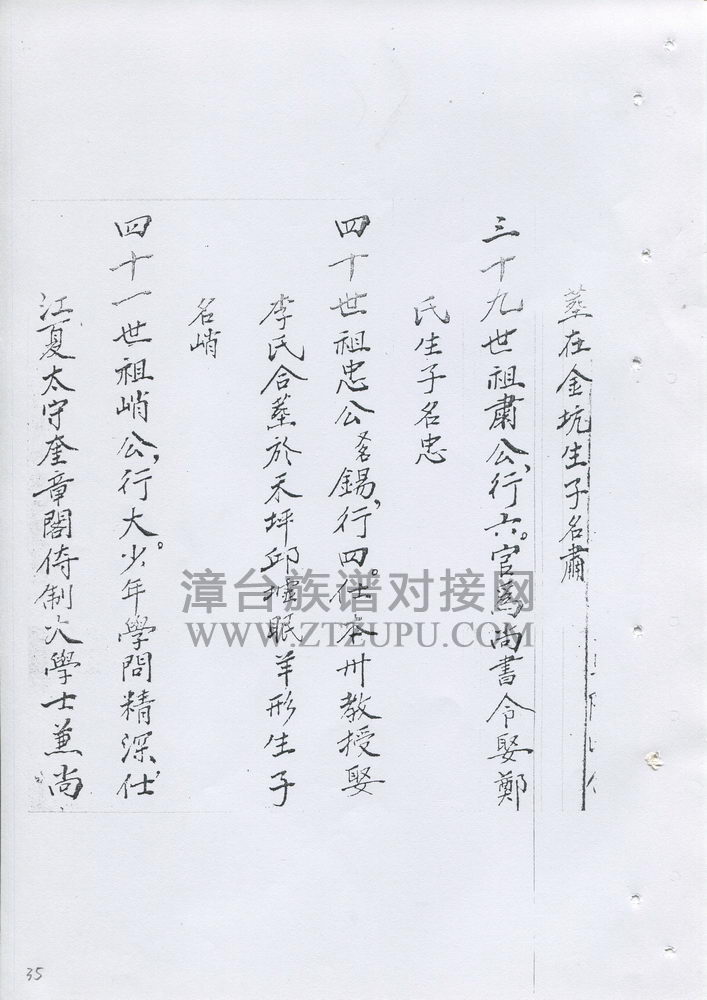 墓在金坑生子名肅
三十九世祖肅公，行六。官為尚書令娶鄭
氏生子名忠
四十世祖忠公名錫，行四。仕本州教授娶
李氏合墓於禾坪邱墟眠羊形生子
名峭
四十一世祖峭公，行大。少年學問精深仕
江夏太守奎章閣侍制次學士蒹尚
漳台族谱对接网
WWW.ZTZUPU.COM
35